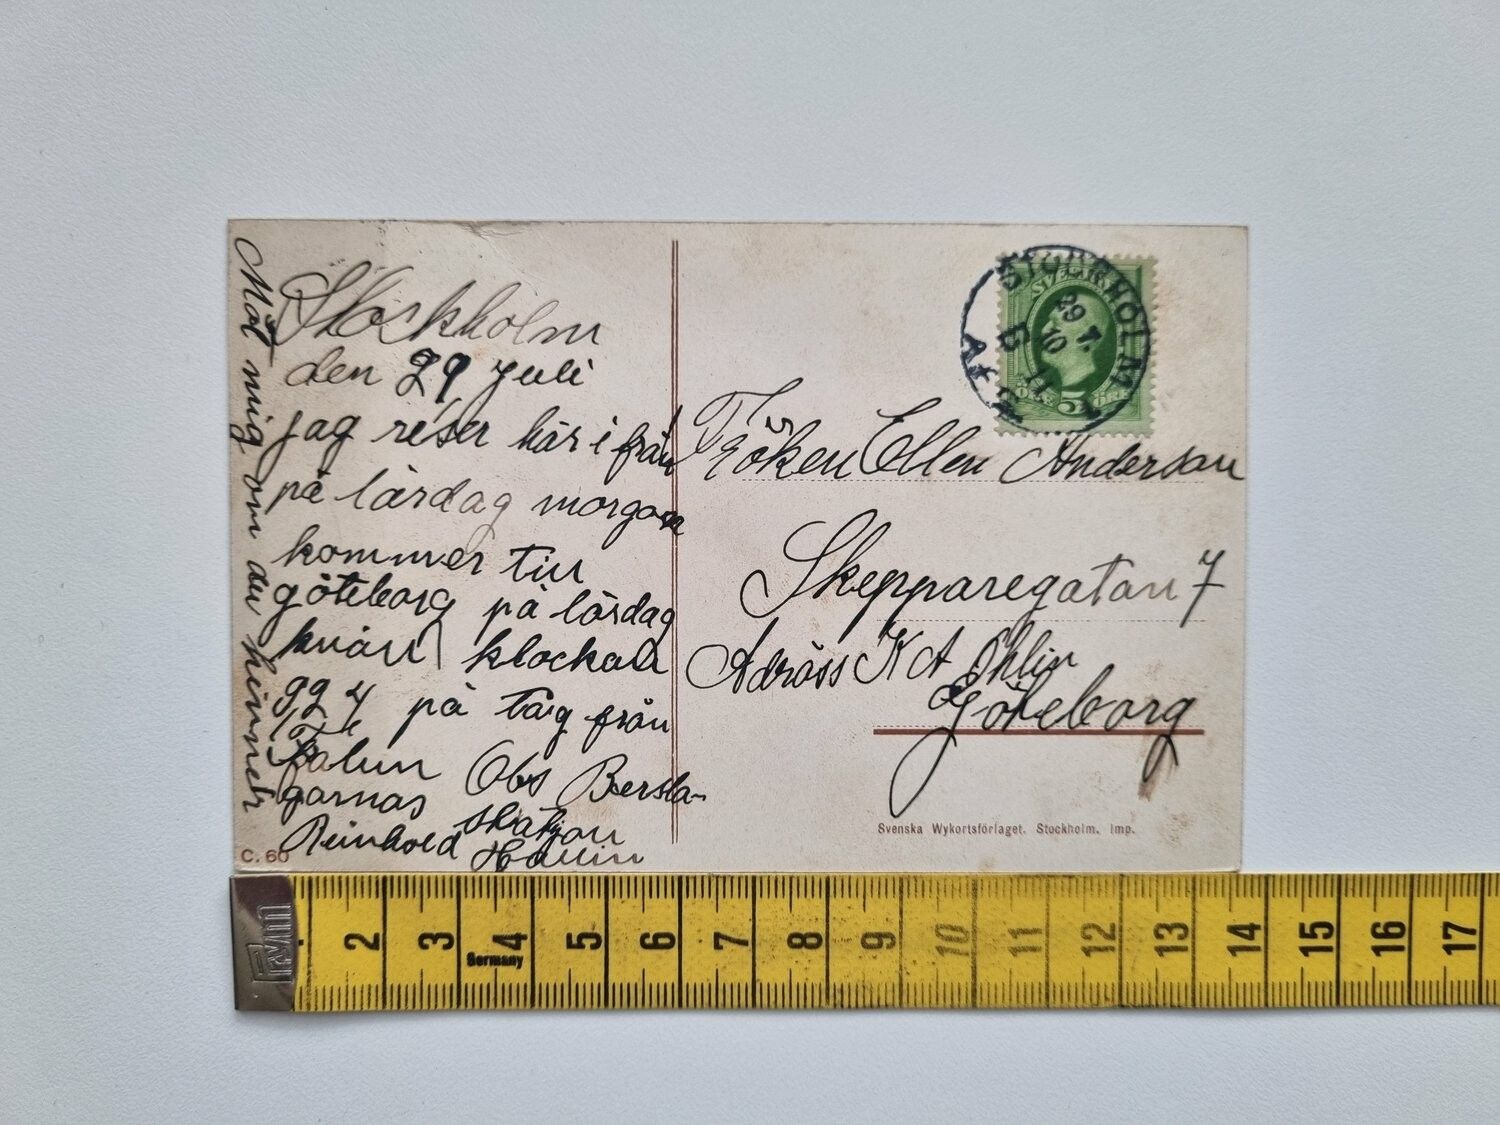 Stockholm
den 29 juli
jag reser här i från
på lärdag morgon
kommer till
göteborg på lördag
kväll klockan
924 på tåg från
Falun Obs Bersla-
garnas
Reinhold Hallin
Möt mig om du hinner
C. 60
STOCKHOLM 1
29 7.
10
Fröken Ellen Anderson
Skepparegatan 7
Adräss K A Ohlin
Göteborg
SVERIGE
5
Svenska Wykortsförlaget. Stockholm. Imp.
2 3 4 5 6 7 8 9 10 11 12 13 14 15 16 17
Germany